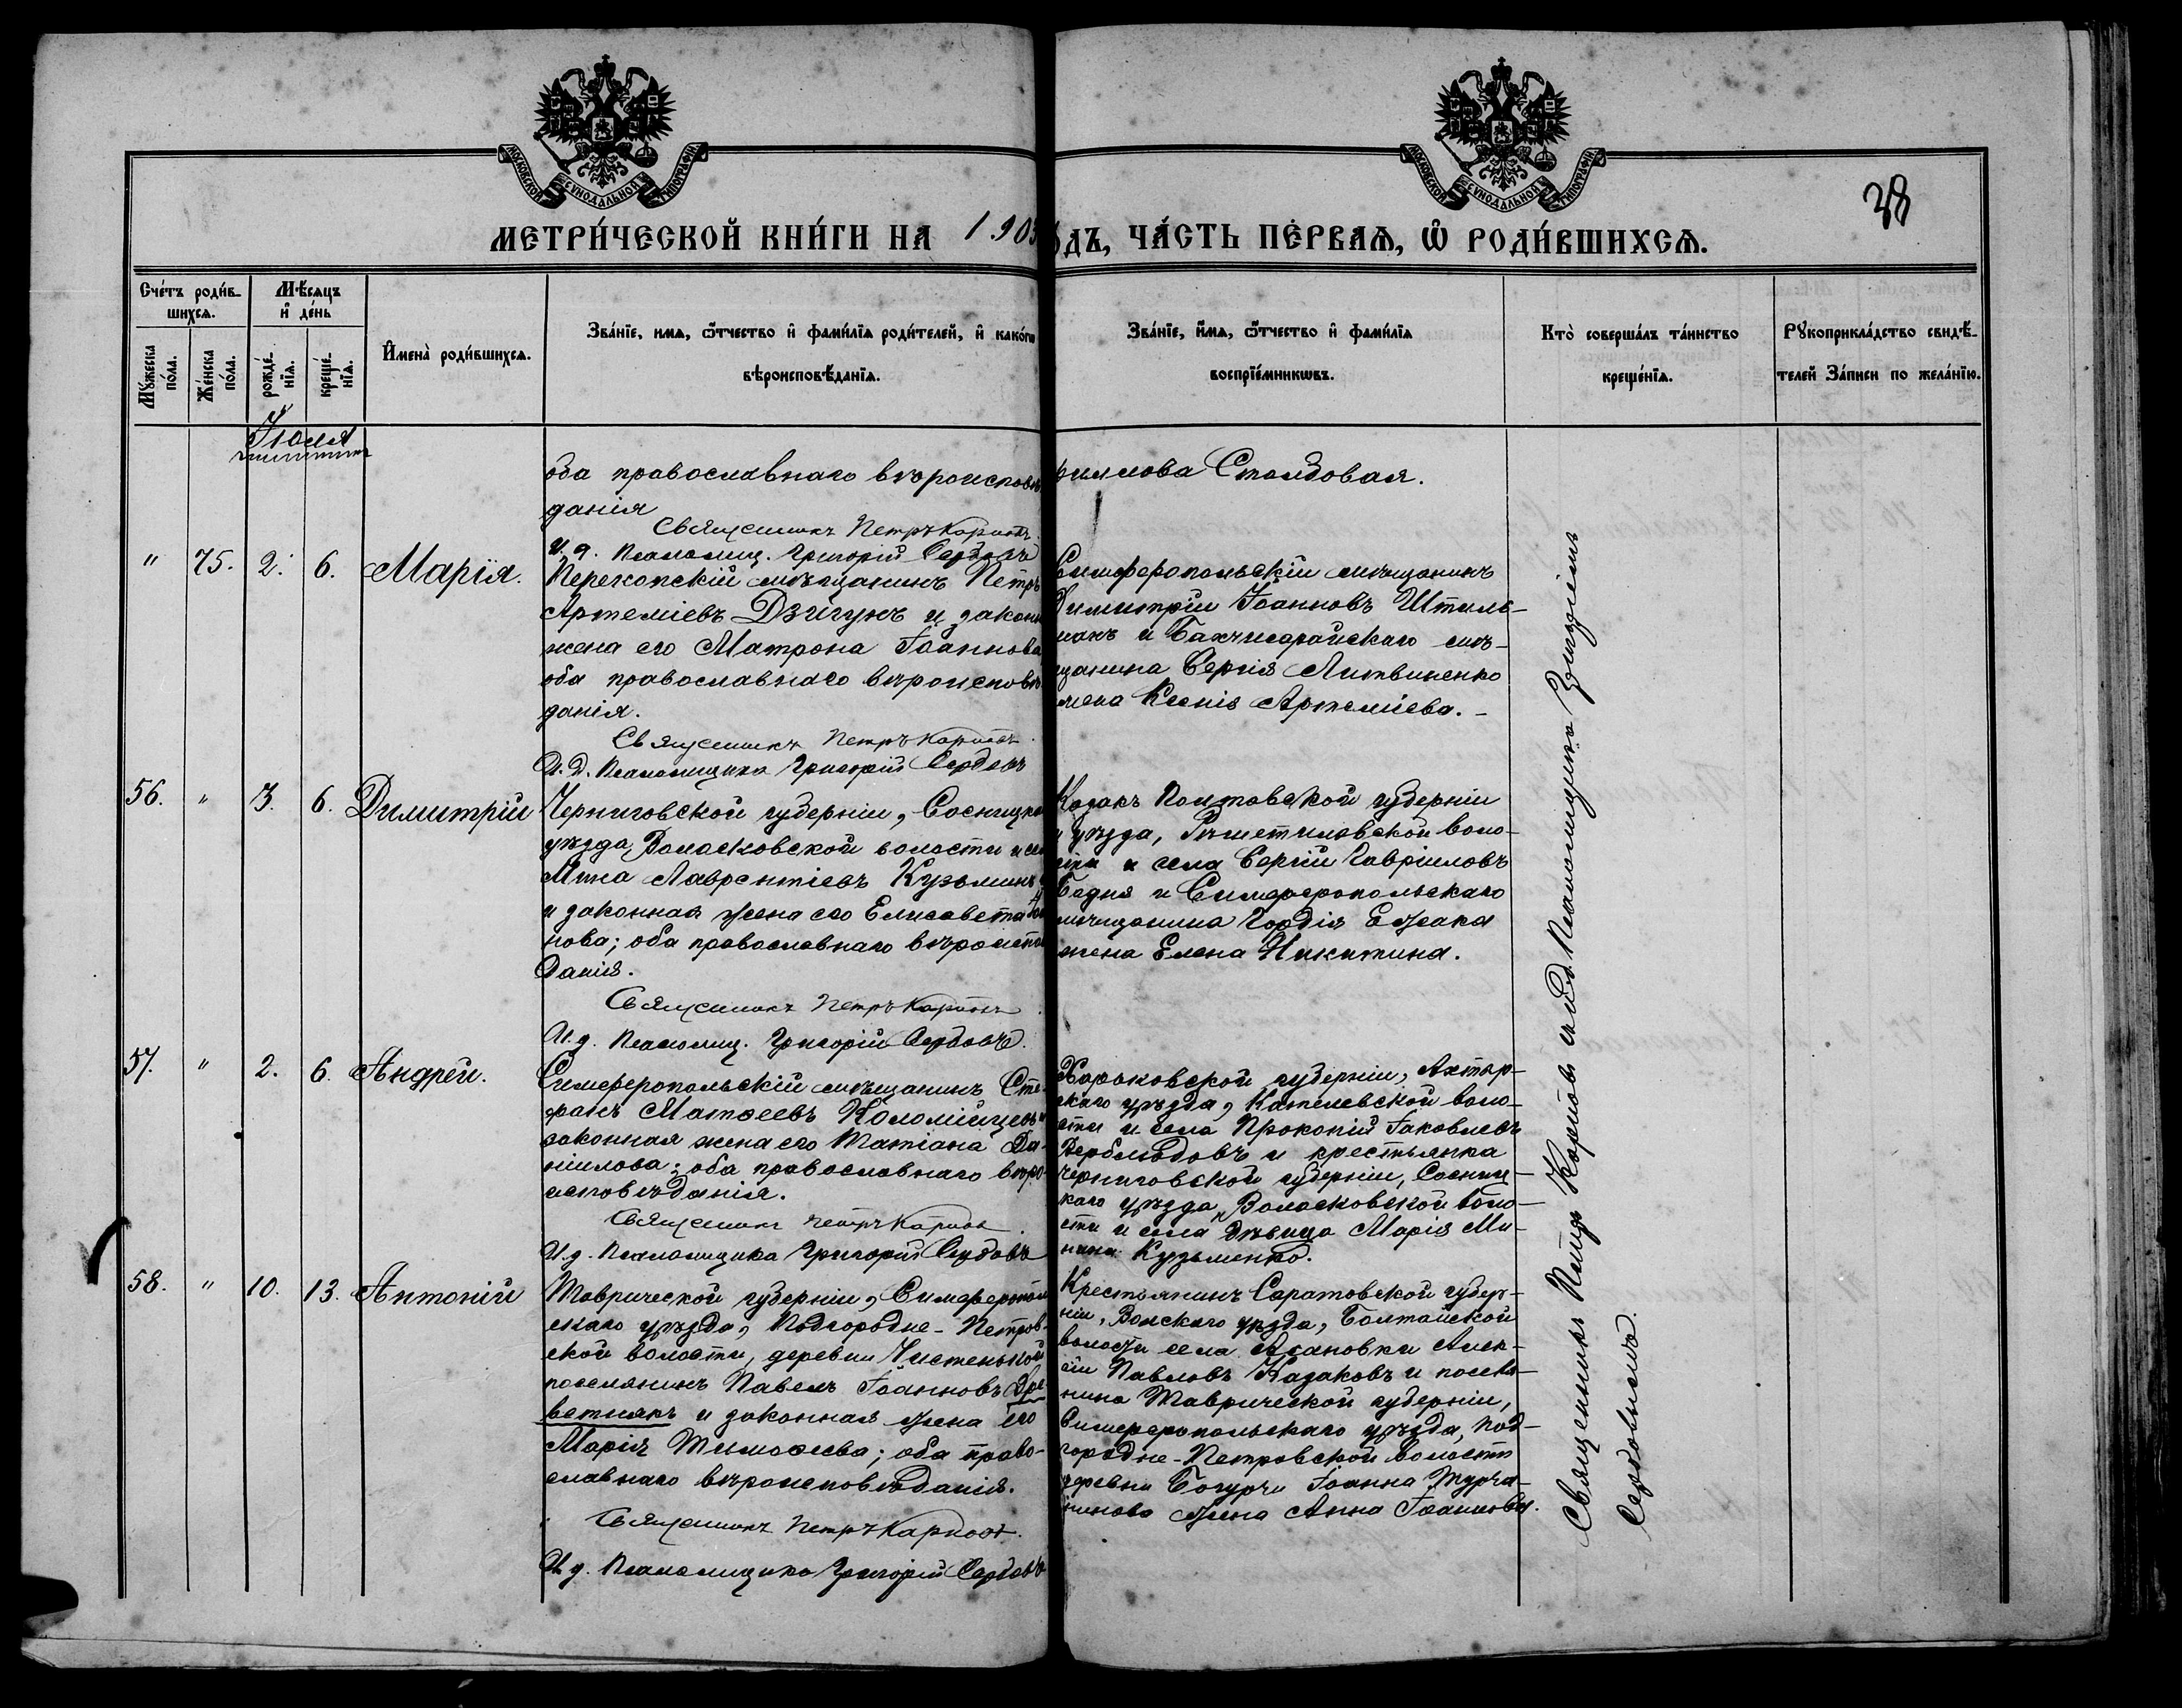 МОСКОВСКОЙ СѴНОДАЛЬНОЙ ТИПОГРАФІИ
МОСКОВСКОЙ СѴНОДАЛЬНОЙ ТИПОГРАФІИ
38
МЕТРИ́ЧЕСКОЙ КНИ́ГИ НА 1903
ОДЪ, ЧА́СТЬ ПЕ́РВАѦ, Ѡ РОДИ́ВШИХСѦ.
Сче́тъ роди́в-
шихсѧ.
Мѣ́сѧцъ
и де́нь
Мꙋ́жеска по́ла.
Же́нска по́ла.
рожде́-нїѧ.
креще́-нїѧ.
Имена̀ роди́вшихсѧ.
Зва́нїе, имѧ, ѿтчество и фами́лїѧ роди́телей, и како́гѡ
вѣроисповѣ́данїѧ.
Зва́нїе, и́мѧ, ѿтчество и фами́лїѧ
воспрїе́мникѡвъ.
Кто̀ соверша́лъ та́инство
креще́нїѧ.
Рꙋкоприкла́дство свидѣ́-
телей За́писи по жела́нїю.
Іюля
оба православнаго вѣроисповѣ
данія
Священникъ Петръ Карповъ
И. д. Псаломщ. Григорій Сербовъ
римова Столбовая.
" 75. 2. 6. Марія.
Перекопскій мѣщанинъ Петръ
Артеміевъ Дзигунъ и законн
жена его Матрона Іоаннова
оба православнаго вѣроисповѣ
данія.
Священникъ Петръ Карповъ
И. д. Псаломщика Григорій Сербовъ
Симферопольскій мѣщанинъ
Димитрій Іоанновъ Штиль-
манъ и Бахчисарайскаго мѣ-
щанина Сергія Литвиненко
жена Ксенія Артеміева. -
56. " 3. 6. Димитрій
Черниговской губерніи, Сосницка
уѣзда, Волосковской волости и се
Мина Лаврентіевъ Кузьмин
и законная жена его Елисавета
нова; оба православнаго вѣроиспо
данія.
Священникъ Петръ Карповъ
И. д. Псаломщ. Григорій Сербовъ.
Козакъ Полтавской губерніи
и уѣзда, Рѣшетиловской воло-
сти и села Сергій Гавріиловъ
Бедня и Симферопольскаго
мѣщанина Гордія Ежака
жена Елена Никитина.
57. " 2. 6. Андрей.
Симферопольскій мѣщанинъ Сте-
фанъ Матѳеевъ Коломійцевъ и
законная жена его Татіана Да-
ніилова; оба православнаго вѣро-
исповѣданія.
Священникъ Петръ Карповъ
И. д. Псаломщика Григорій Сербовъ
Харьковской губерніи, Ахтыр-
скаго уѣзда, Котелевской воло-
сти и села Прокопій Іаковлевъ
Верблюдовъ и крестьянка
Черниговской губерніи, Сосниц-
каго уѣзда, Волосковской воло-
сти и села дѣвица Марія Ми-
нина Кузьменко.
58. " 10. 13. Антоній
Таврической губерніи, Симферополь
скаго уѣзда, Подгородне-Петров-
ской волости, деревни Чистенькой
поселянинъ Павелъ Іоанновъ Дре-
ветнякъ и законная жена его
Марія Тимоѳеева; оба право-
славнаго вѣроисповѣданія.
Священникъ Петръ Карповъ.
И д. Псаломщика Григорій Сербовъ
Крестьянинъ Саратовской губер-
ніи, Вольскаго уѣзда, Болтайской
волости села Асановки Алек-
сій Павловъ Казаковъ и поселя-
нина Таврической губерніи,
Симферопольскаго уѣзда, Под-
городне-Петровской волости
деревни Богурчи Іоанна Турча-
нинова жена Анна Іоаннова.
Священникъ Петръ Карповъ съ и.д. Псаломщика Григоріемъ
Сербовымъ.